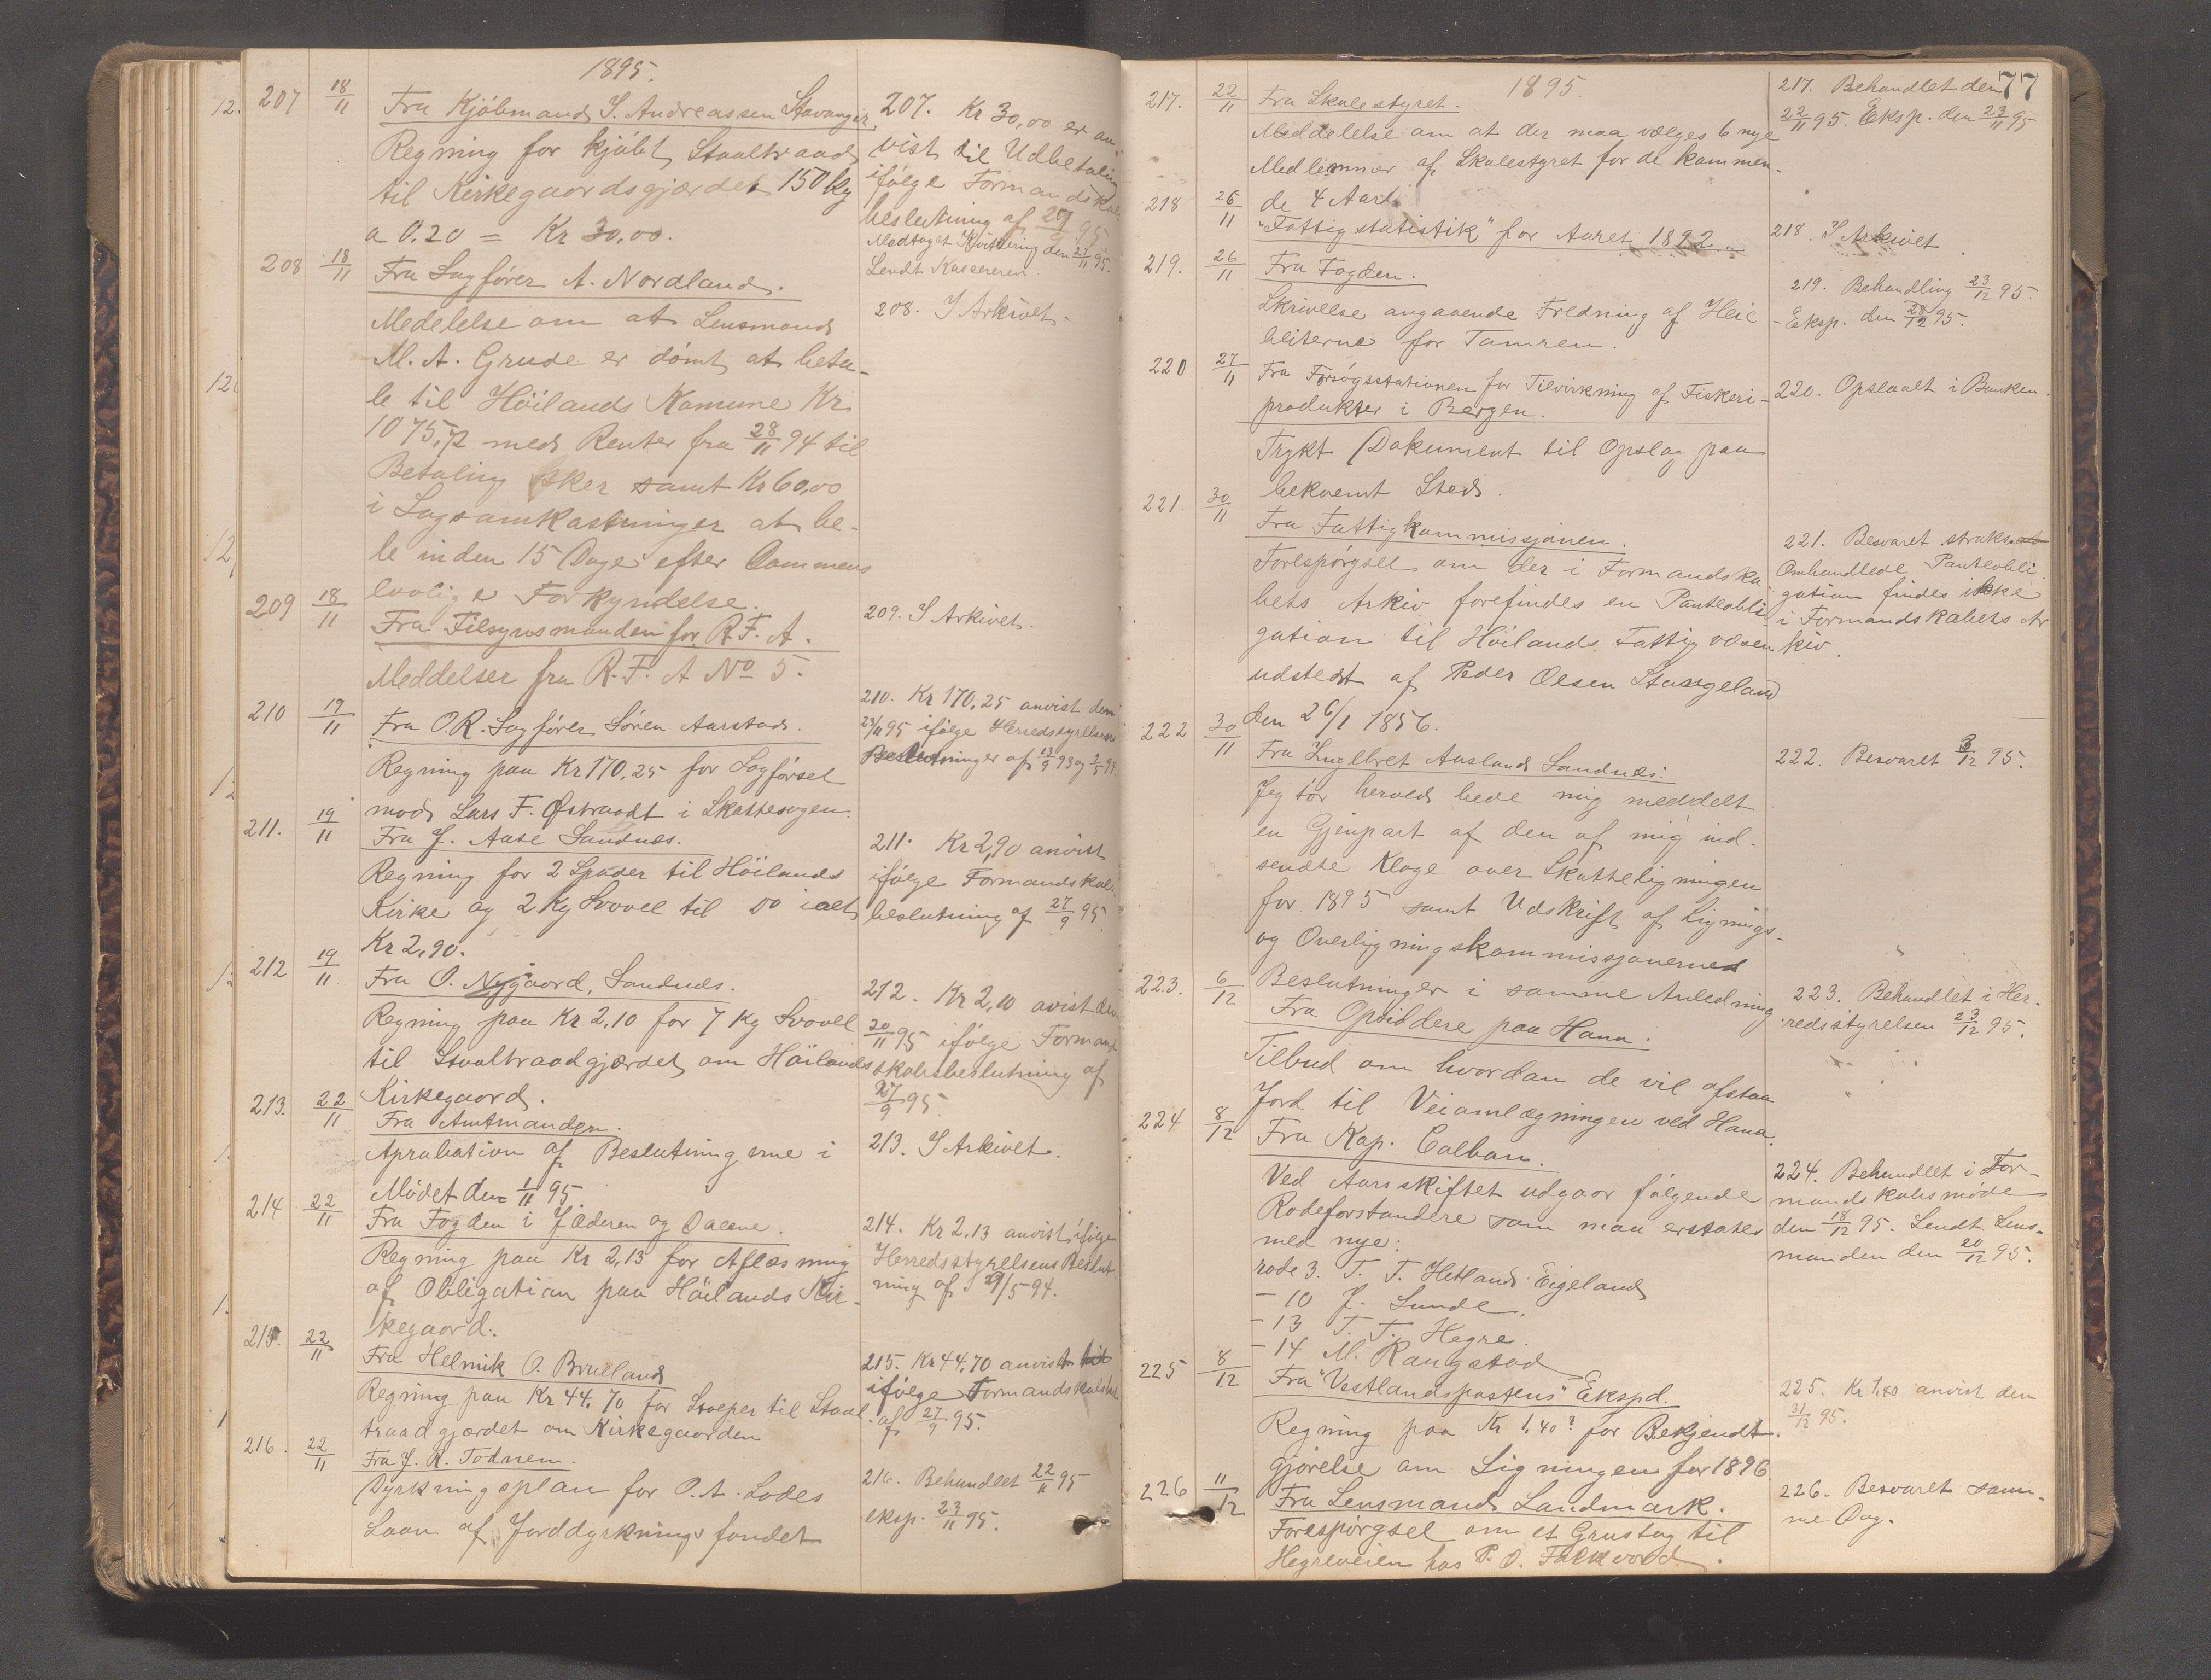 1895.
207 18/11 Fra Kjøbmand S. Andreassen Stavanger.
Regning for kjøbt Staaltraad
til Kirkegaardsgjærdet 150 kg
a 0.20 = Kr 30,00.
207. Kr 30,00 er an-
vist til Udbetaling
ifølge Formandskabs
beslutning af 27/9 95
Modtaget Kvittering den 22/11 95.
Sendt Kassereren.
208 18/11 Fra Sagfører A. Nordland.
Medelelse om at Lensmand
M. A. Grude er dømt at beta-
le til Höilands Komune Kr
1075,72 med Renter fra 28/11 94 til
Betaling sker samt Kr 60,00
i Sagsomkastninger at be-
le inden 15 Dage efter Dommens
lovlige Forkyndelse.
208. I Arkivet.
209 18/11 Fra Tilsynsmanden for R. F. A.
Meddelser fra R. F. A No 5.
209. I Arkivet.
210 19/11 Fra O.R. Sagfører Søren Aarstad.
Regning paa Kr 170,25 for Sagførsel
mod Lars F. Østraadt i Skattesagen.
210. Kr 170,25 anvist den
23/11 95 ifølge Herredsstyrelsens
Beslutninger af 13/9 93 og
211. 19/11 Fra J. Aase Sandnes.
Regning for 2 Spader til Höilands
Kirke og 2 Kg Svovel til Do ialt
Kr 2,90.
211. Kr 2,90 anvist
ifølge Formandskabs
beslutning af 27/9 95
212 19/11 Fra O. Nygaard, Sandnes.
Regning paa Kr 2,10 for 7 Kg Svovel
til Staaltraadgjærdet om Höilands
Kirkegaard.
212. Kr 2,10 avist den
20/11 95 ifølge Formand
skabsbeslutning af
27/9 95.
213. 22/11 Fra Amtmanden.
Aprobation af Beslutningerne i
Mödet den 1/11 95.
213. I Arkivet.
214 22/11 Fra Fogden i Jæderen og Dalene.
Regning paa Kr 2,13 for Aflæsning
af Obligation paa Höilands Kir-
kegaard.
214. Kr 2,13 anvist ifølge
Herredsstyrelsens Beslut-
ning af 29/5 94.
215. 22/11 Fra Helmik O. Brueland
Regning paa Kr 44,70 for Stolper til Staal-
traadgjærdet om Kirkegaarden
215. Kr 44,70 anvist til
ifølge Formandskabsbesl
af 27/9 95.
216. 22/11 Fra J. R. Todnem.
Dyrkningsplan for O. A. Lodes
Laan af Jorddyrkningsfondet
216. Behandlet 22/11 95
eksp. 23/11 95.
77
1895.
217. 22/11 Fra Skolestyret.
Meddelelse om at der maa vælges 6 nye
Medlemmer af Skolestyret for de kommen-
de 4 Aar.
217. Behandlet den
22/11 95. Eksp. den 23/11 95
218 26/11 "Fattigstatistik" for Aaret 1892.
218. I Arkivet
219. 26/11 Fra Fogden.
Skrivelse angaaende Fredning af Heie
bliterne for Tamren.
219. Behandling 23/12 95.
- Eksp. den 28/12 95.
220 27/11 Fra Forsøgsstationen for Tilvirkning af Fiskeri-
produkter i Bergen.
Trykt Dokument til Opslag paa
bekvemt Sted.
220. Opslaalt i Banken.
221. 30/11 Fra Fattigkommissjonen.
Forespørgsel om der i Formandska
bets Arkiv forefindes en Panteobli
gation til Höilands Fattigvæsen
udstedt af Peder Olsen Stangeland
den 26/1 1856.
221. Besvaret straks.
Omhandlede Panteobli
gation findes ikke
i Formandskabets Ar
kiv.
222 30/11 Fra Ingebret Aasland Sandnes.
Jeg tör herved bede mig meddelt
en Gjenpart af den af mig ind-
sendte Klage over Skatteligningen
for 1895 samt Udskrift af Lignings-
og Overligningskommissjonernes
Beslutninger i samme Anledning
222. Besvaret 3/12 95.
223. 6/12 Fra Opsiddere paa Hana.
Tilbud om hvordan de vil afstaa
Jord til Veiomlægningen ved Hana.
223. Behandlet i Her-
redsstyrelsen 23/12 95.
224 8/12 Fra Kap. Colban.
Ved Aarsskiftet udgaar følgende
Rodeforstandere som maa erstates
med nye:
rode 3. T. T. Hetland Eigeland
- 10 J. Lunde.
- 13 T. T. Hegre.
- 14 M. Rangstad
224. Behandlet i For-
mandskabsmøde
den 18/12 95. Sendt Lens-
manden den 20/12 95.
225 8/12 Fra "Vestlandspostens" Ekspd.
Regning paa Kr 1,40? for Bekjendt-
gjörelse om Ligningen for 1896.
225. Kr 1,40 anvist den
31/12 95.
226 11/12 Fra Lensmand Landmark.
Forespørgsel om et Grustag til
Hegreveien hos P. O. Folkvord.
226. Besvaret sam-
me Dag.